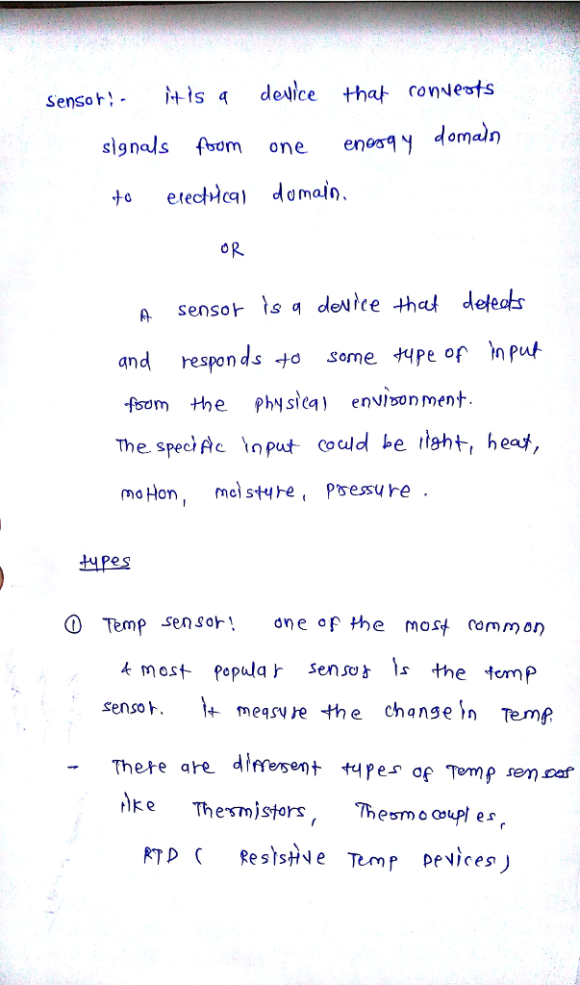 sensor:- it is a device that converts
signals from one energy domain
to electrical domain.
OR
A sensor is a device that detects
and responds to some type of input
from the physical environment.
The specific input could be light, heat,
motion, moisture, pressure.
types
① Temp sensor: one of the most common
& most popular sensor is the temp
sensor. It measure the change in Temp.
- There are different types of Temp sensor
like Thermistors, Thermocouples,
RTD ( Resistive Temp Devices)